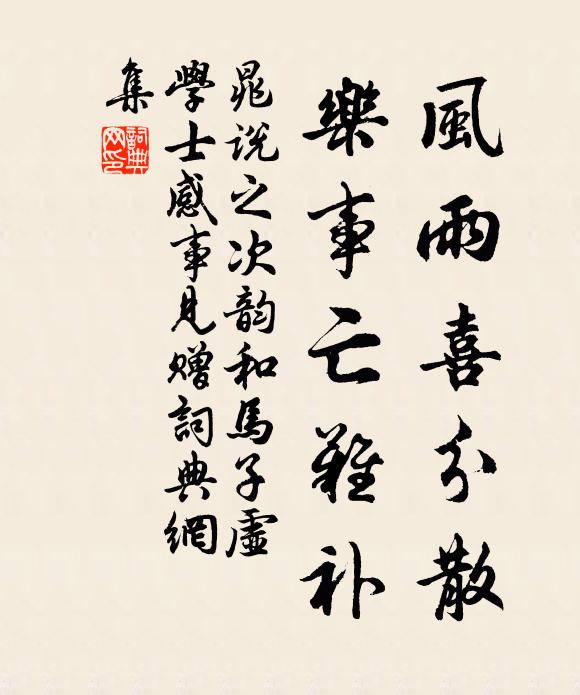 風雨喜分散
樂事亡難补
晁说之次韵和馬子虛
學士感事見贈詞典網
集
詞典網印